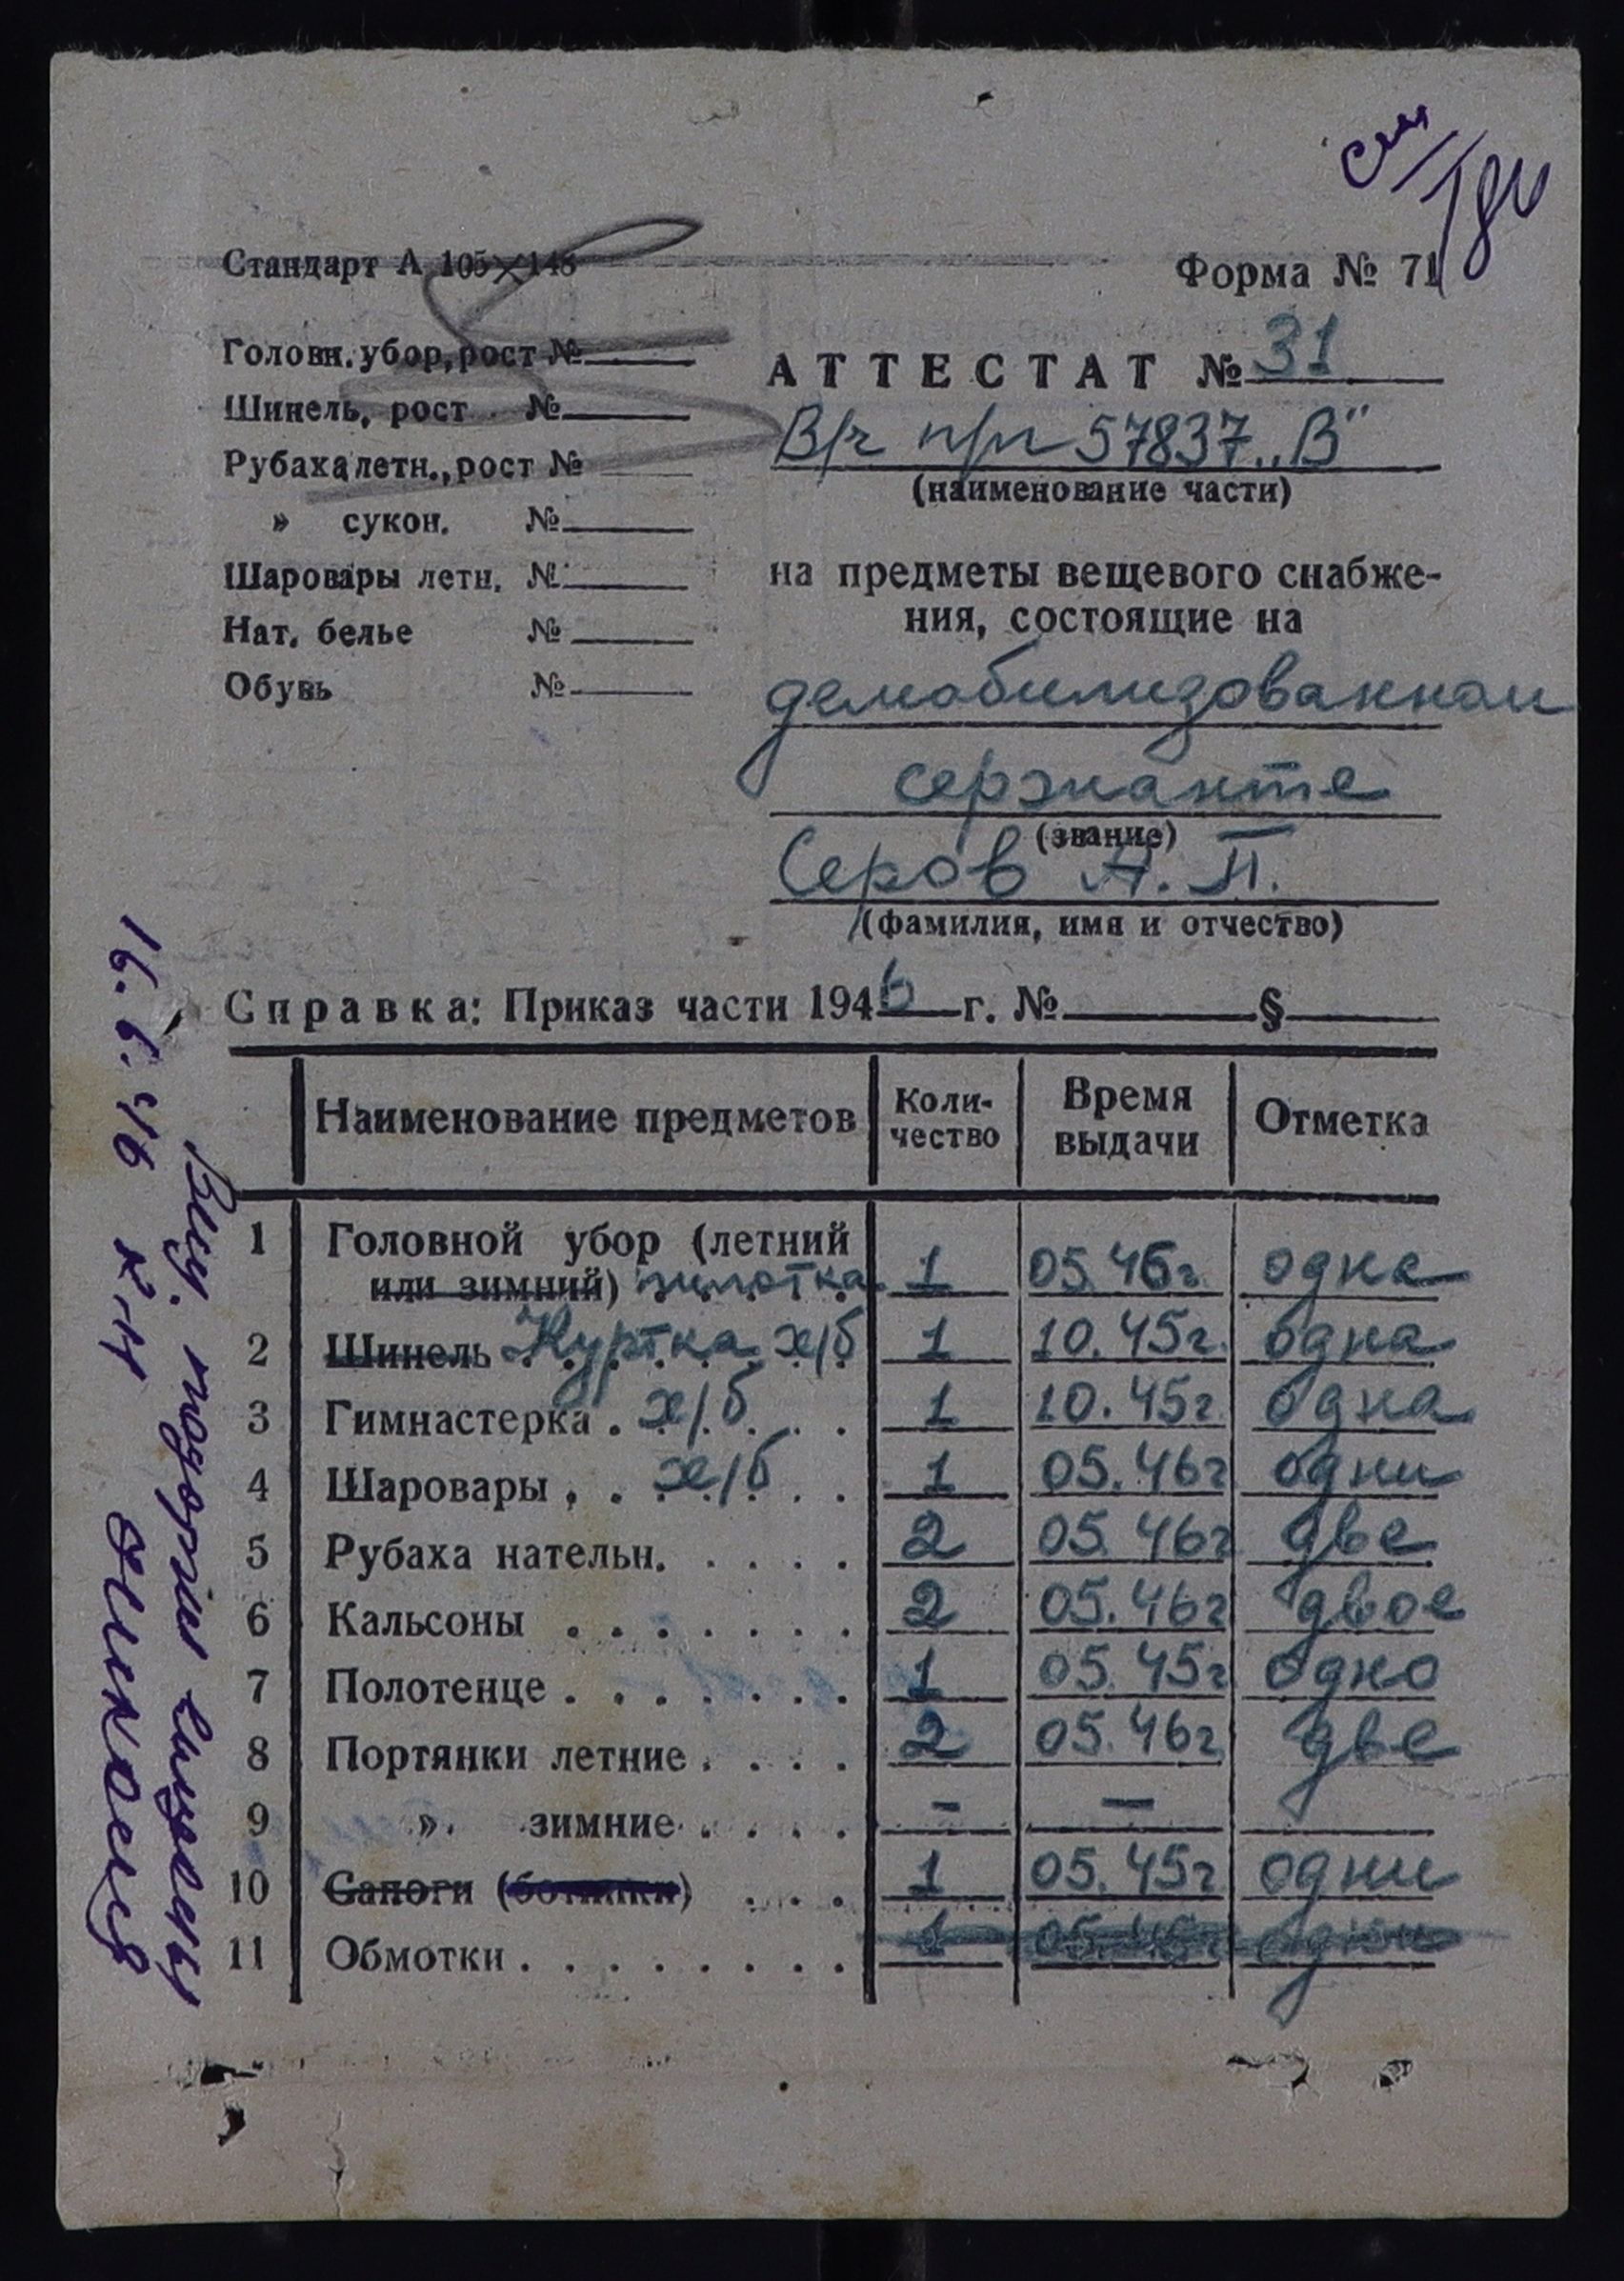 Стандарт А 105×148
Форма № 71
Головн. убор, рост №
Шинель, рост №
Рубаха летн., рост №
» сукон. №
Шаровары летн. №
Нат. белье №
Обувь №
АТТЕСТАТ № 31
В/ч п/п 57837 „В"
(наименование части)
на предметы вещевого снабже-
ния, состоящие на
демобилизованном
сержанте
(звание)
Серов А. П.
(фамилия, имя и отчество)
Справка: Приказ части 1946 г. № §
Наименование предметов Коли- чество Время выдачи Отметка
1 Головной убор (летний
или зимний) пилотка 1 05.46г. одна
2 Шинель Куртка х/б 1 10.45г. одна
3 Гимнастерка х/б 1 10.45г. одна
4 Шаровары х/б 1 05.46г одни
5 Рубаха нательн. 2 05.46г две
6 Кальсоны 2 05.46г двое
7 Полотенце 1 05.45г одно
8 Портянки летние 2 05.46г. две
9 » зимние - —
10 Сапоги (ботинки) 1 05.45г одни
11 Обмотки 1 05.46г одни
16.6.46